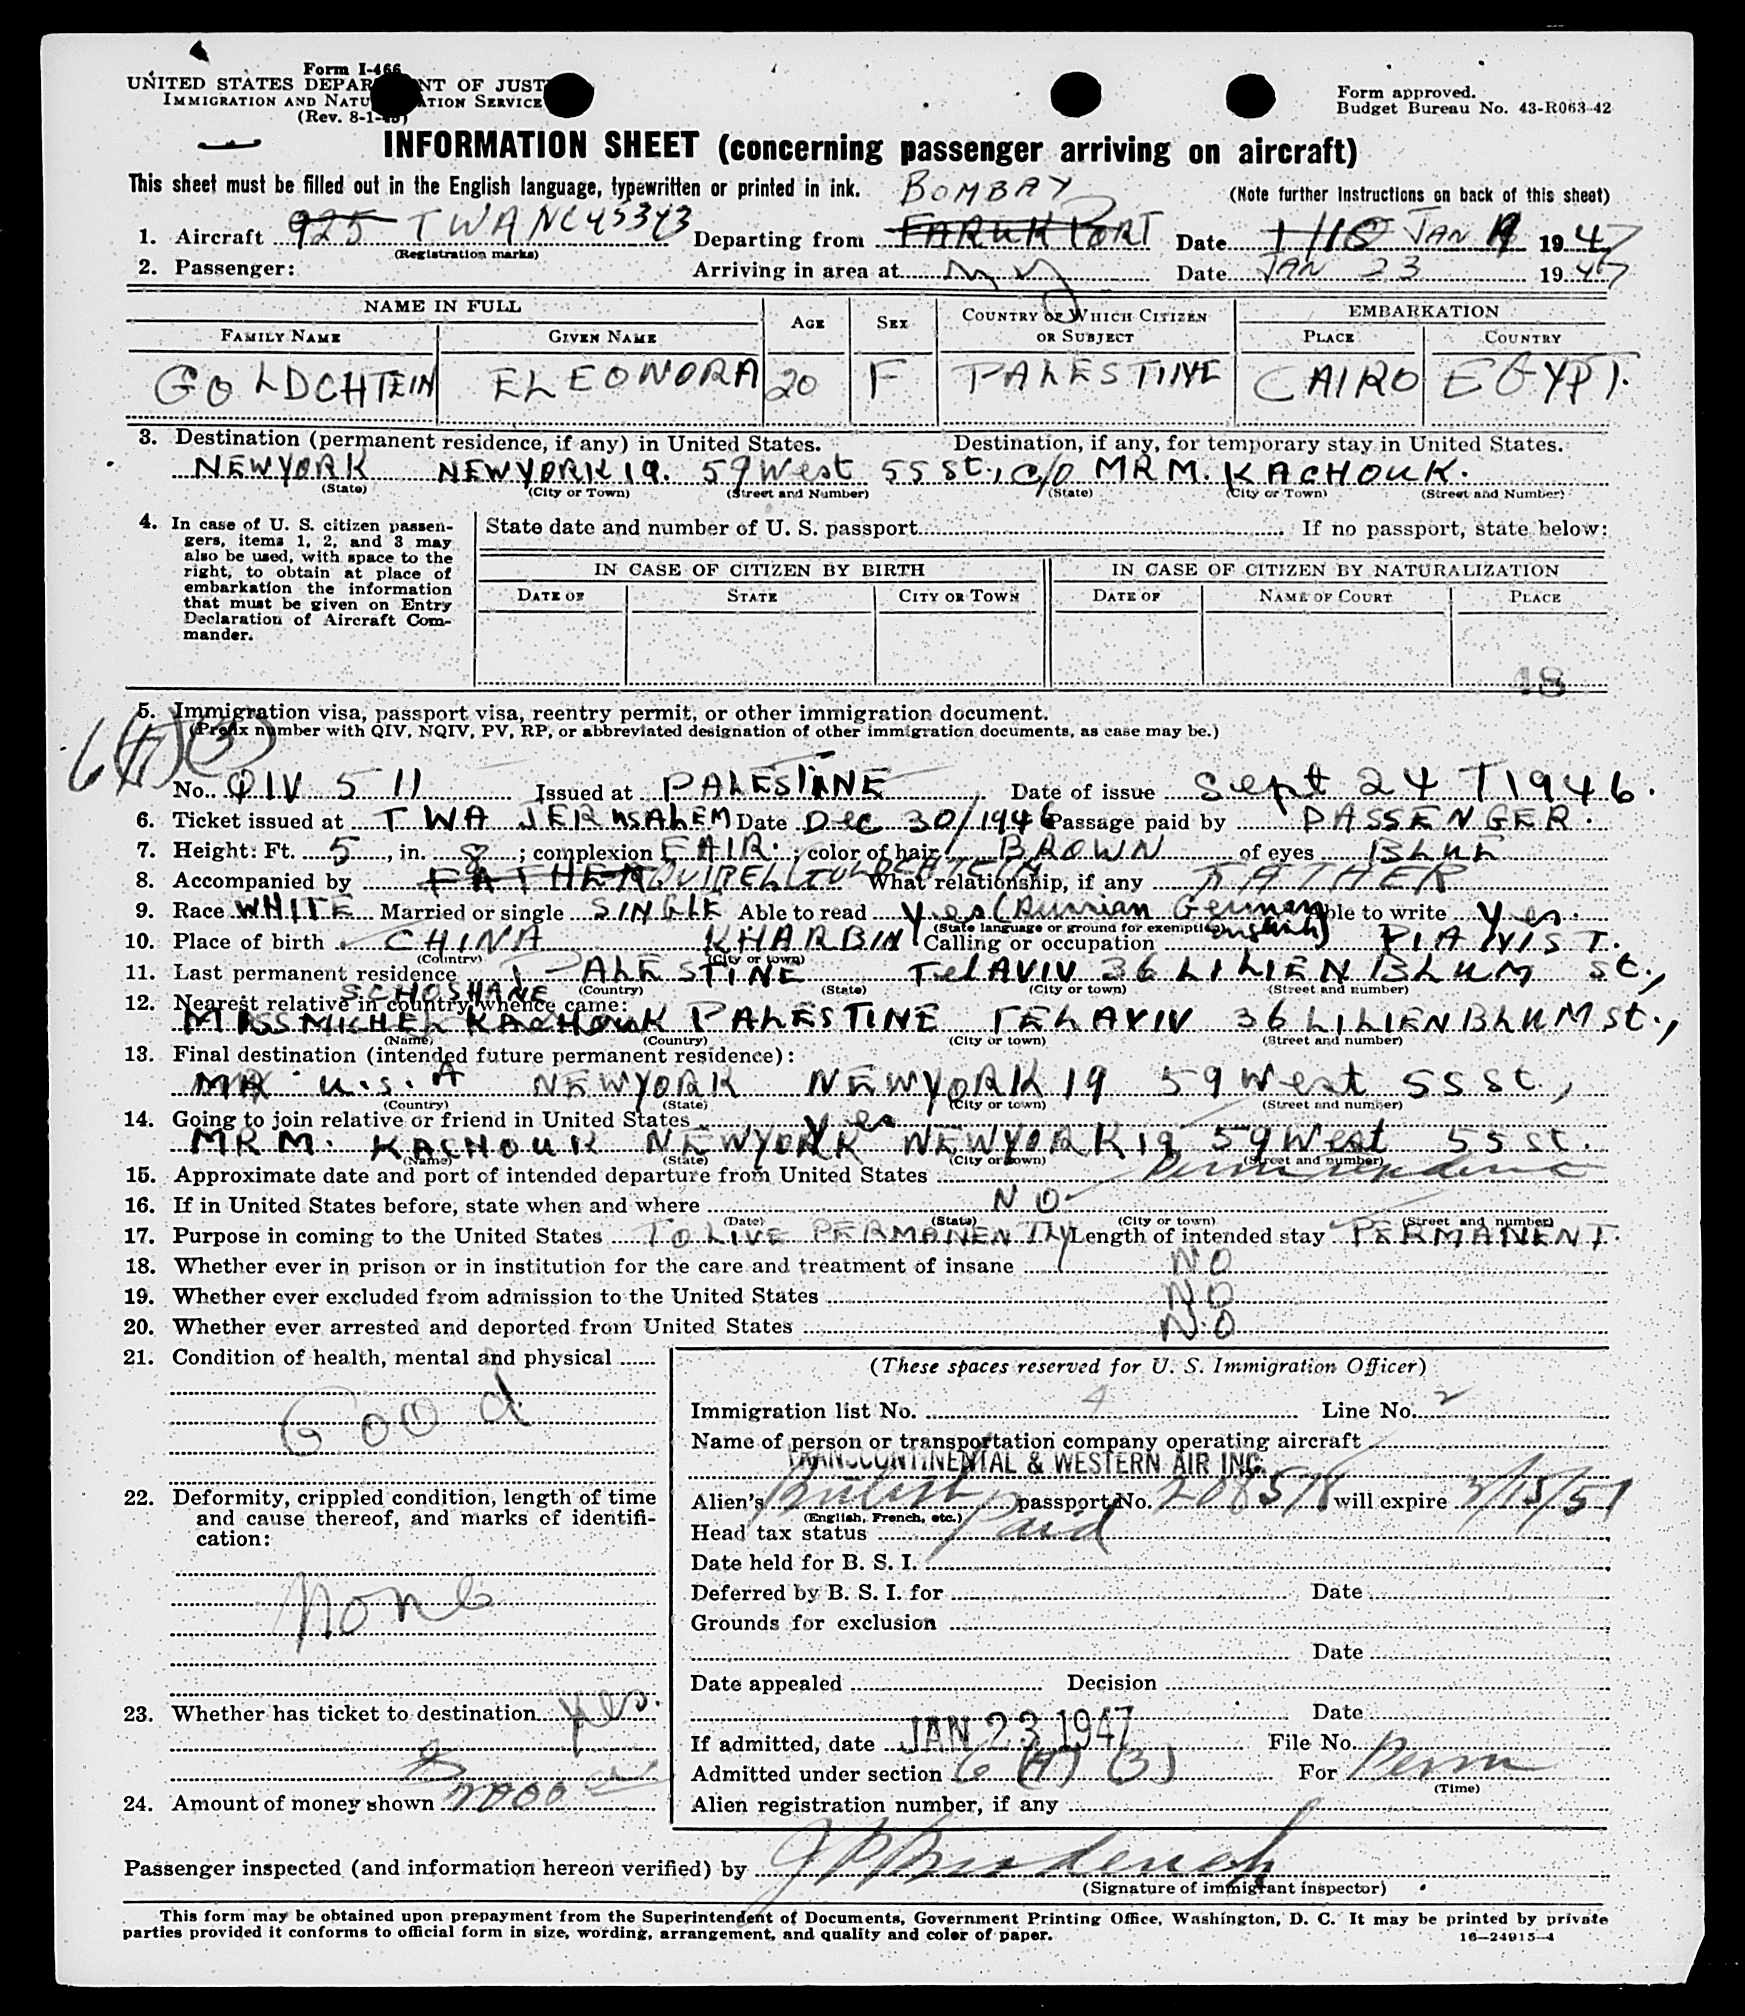 Form I-466
UNITED STATES DEPARTMENT OF JUSTICE
IMMIGRATION AND NATURALIZATION SERVICE
(Rev. 8-1-45)
Form approved.
Budget Bureau No. 43-R063-42
INFORMATION SHEET (concerning passenger arriving on aircraft)
This sheet must be filled out in the English language, typewritten or printed in ink. BOMBAY (Note further instructions on back of this sheet)
1. Aircraft 925 TWA NC45343 Departing from FARUK PORT Date JAN 1947
(Registration marks)
2. Passenger: Arriving in area at NY Date JAN 23 1947
NAME IN FULL AGE SEX COUNTRY OF WHICH CITIZEN OR SUBJECT EMBARKATION
FAMILY NAME GIVEN NAME PLACE COUNTRY
GOLDCHTEIN ELEONORA 20 F PALESTINE CAIRO EGYPT.
3. Destination (permanent residence, if any) in United States. Destination, if any, for temporary stay in United States.
NEWYORK NEWYORK 19. 59 West 55 St., c/o MR M. KACHOUK.
(State) (City or Town) (Street and Number) (State) (City or Town) (Street and Number)
4. In case of U. S. citizen passengers, items 1, 2, and 3 may also be used, with space to the right, to obtain at place of embarkation the information that must be given on Entry Declaration of Aircraft Commander.
State date and number of U. S. passport If no passport, state below:
IN CASE OF CITIZEN BY BIRTH IN CASE OF CITIZEN BY NATURALIZATION
DATE OF STATE CITY OR TOWN DATE OF NAME OF COURT PLACE
48
5. Immigration visa, passport visa, reentry permit, or other immigration document.
6(A)(3) (Prefix number with QIV, NQIV, PV, RP, or abbreviated designation of other immigration documents, as case may be.)
No. QIV 511 Issued at PALESTINE Date of issue Sept 24 1946.
6. Ticket issued at TWA JERUSALEM Date Dec 30/1946 Passage paid by PASSENGER.
7. Height: Ft. 5, in. 8; complexion FAIR.; color of hair BROWN of eyes BLUE
8. Accompanied by FATHER What relationship, if any FATHER
9. Race WHITE Married or single SINGLE Able to read Yes (Russian German English) Able to write Yes.
(State language or ground for exemption)
10. Place of birth CHINA KHARBIN Calling or occupation PIANIST.
(Country) (City or town)
11. Last permanent residence PALESTINE Tel AVIV 36 LILIEN BLUM St.,
(Country) (State) (City or town) (Street and number)
12. Nearest relative in country whence came: SCHOSHANE
MISS MICHEL KACHOUK PALESTINE TEL AVIV 36 LILIENBLUM St.,
(Name) (Country) (City or town) (Street and number)
13. Final destination (intended future permanent residence):
MR U.S.A NEWYORK NEWYORK 19 59 West 55 St.,
(Country) (State) (City or town) (Street and number)
14. Going to join relative or friend in United States Yes
MR M. KACHOUK NEWYORK NEWYORK 19 59 West 55 St.
(Name) (State) (City or town) (Street and number)
15. Approximate date and port of intended departure from United States
16. If in United States before, state when and where NO
(Date) (State) (City or town) (Street and number)
17. Purpose in coming to the United States TO LIVE PERMANENTLY Length of intended stay PERMANENT.
18. Whether ever in prison or in institution for the care and treatment of insane NO
19. Whether ever excluded from admission to the United States NO
20. Whether ever arrested and deported from United States NO
21. Condition of health, mental and physical
Good
22. Deformity, crippled condition, length of time and cause thereof, and marks of identification:
None
23. Whether has ticket to destination Yes.
24. Amount of money shown
(These spaces reserved for U. S. Immigration Officer)
Immigration list No. 4 Line No. 2
Name of person or transportation company operating aircraft
TRANSCONTINENTAL & WESTERN AIR INC.
Alien's British passport No. 208578 will expire 3/15/51
(English, French, etc.)
Head tax status Paid
Date held for B. S. I.
Deferred by B. S. I. for Date
Grounds for exclusion
Date
Date appealed Decision
Date
If admitted, date JAN 23 1947 File No.
Admitted under section 6 (A) (3) For Perm
(Time)
Alien registration number, if any
Passenger inspected (and information hereon verified) by
(Signature of immigrant inspector)
This form may be obtained upon prepayment from the Superintendent of Documents, Government Printing Office, Washington, D. C. It may be printed by private
parties provided it conforms to official form in size, wording, arrangement, and quality and color of paper.
16—24915-4